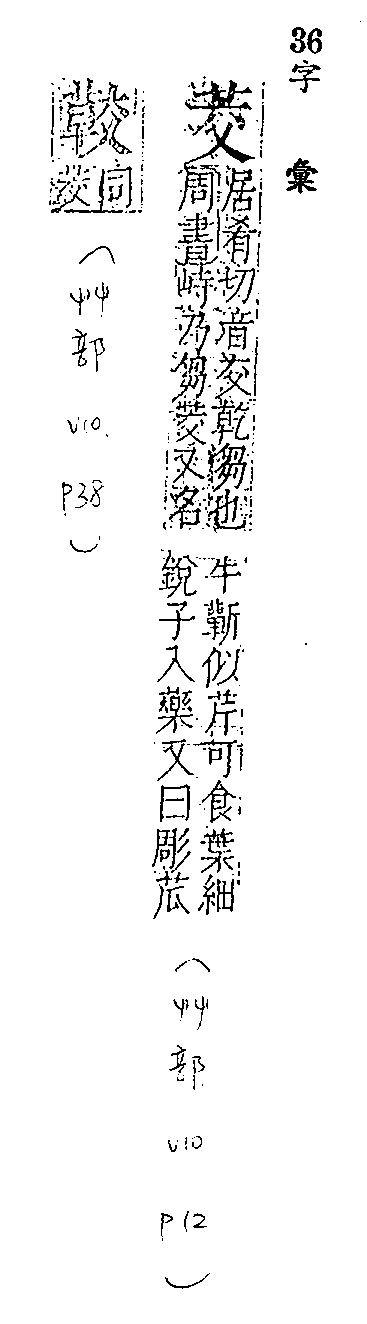 36字彙
茭
居肴切音交乾芻也
周書峙乃芻茭又名
牛蘄似芹可食葉細
銳子入藥又曰彫苽
(艸部 v10 p12)
同
茭
(艸部 v10. p38)